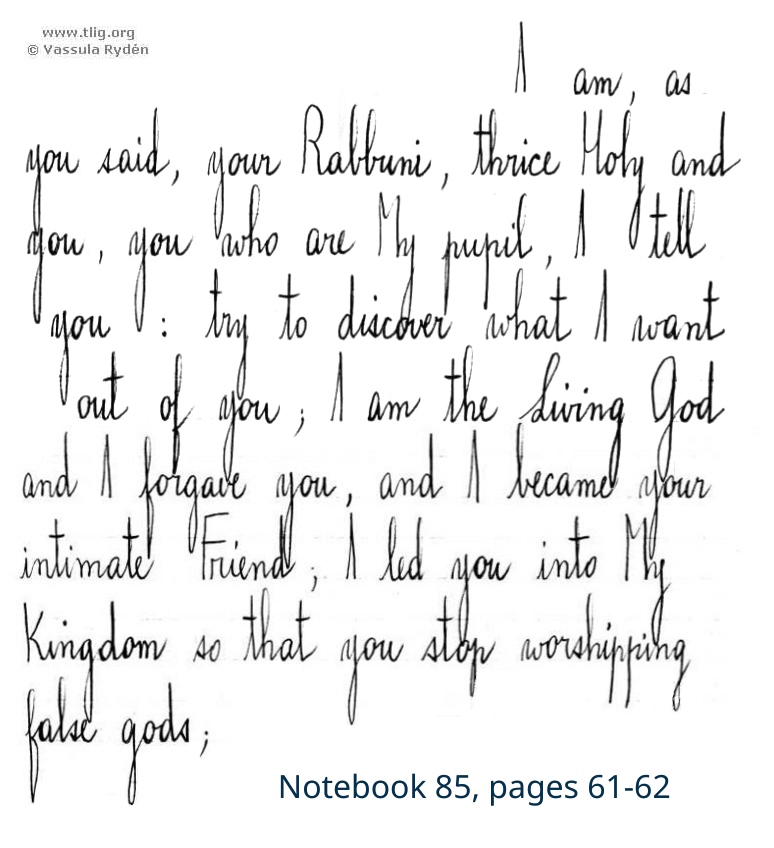 www.tlig.org
© Vassula Rydén
I am, as
you said, your Rabbuni, thrice Holy and
you, you who are My pupil, I tell
you : try to discover what I want
out of you ; I am the Living God
and I forgave you, and I became your
intimate Friend ; I led you into My
Kingdom so that you stop worshipping
false gods ;
Notebook 85, pages 61-62